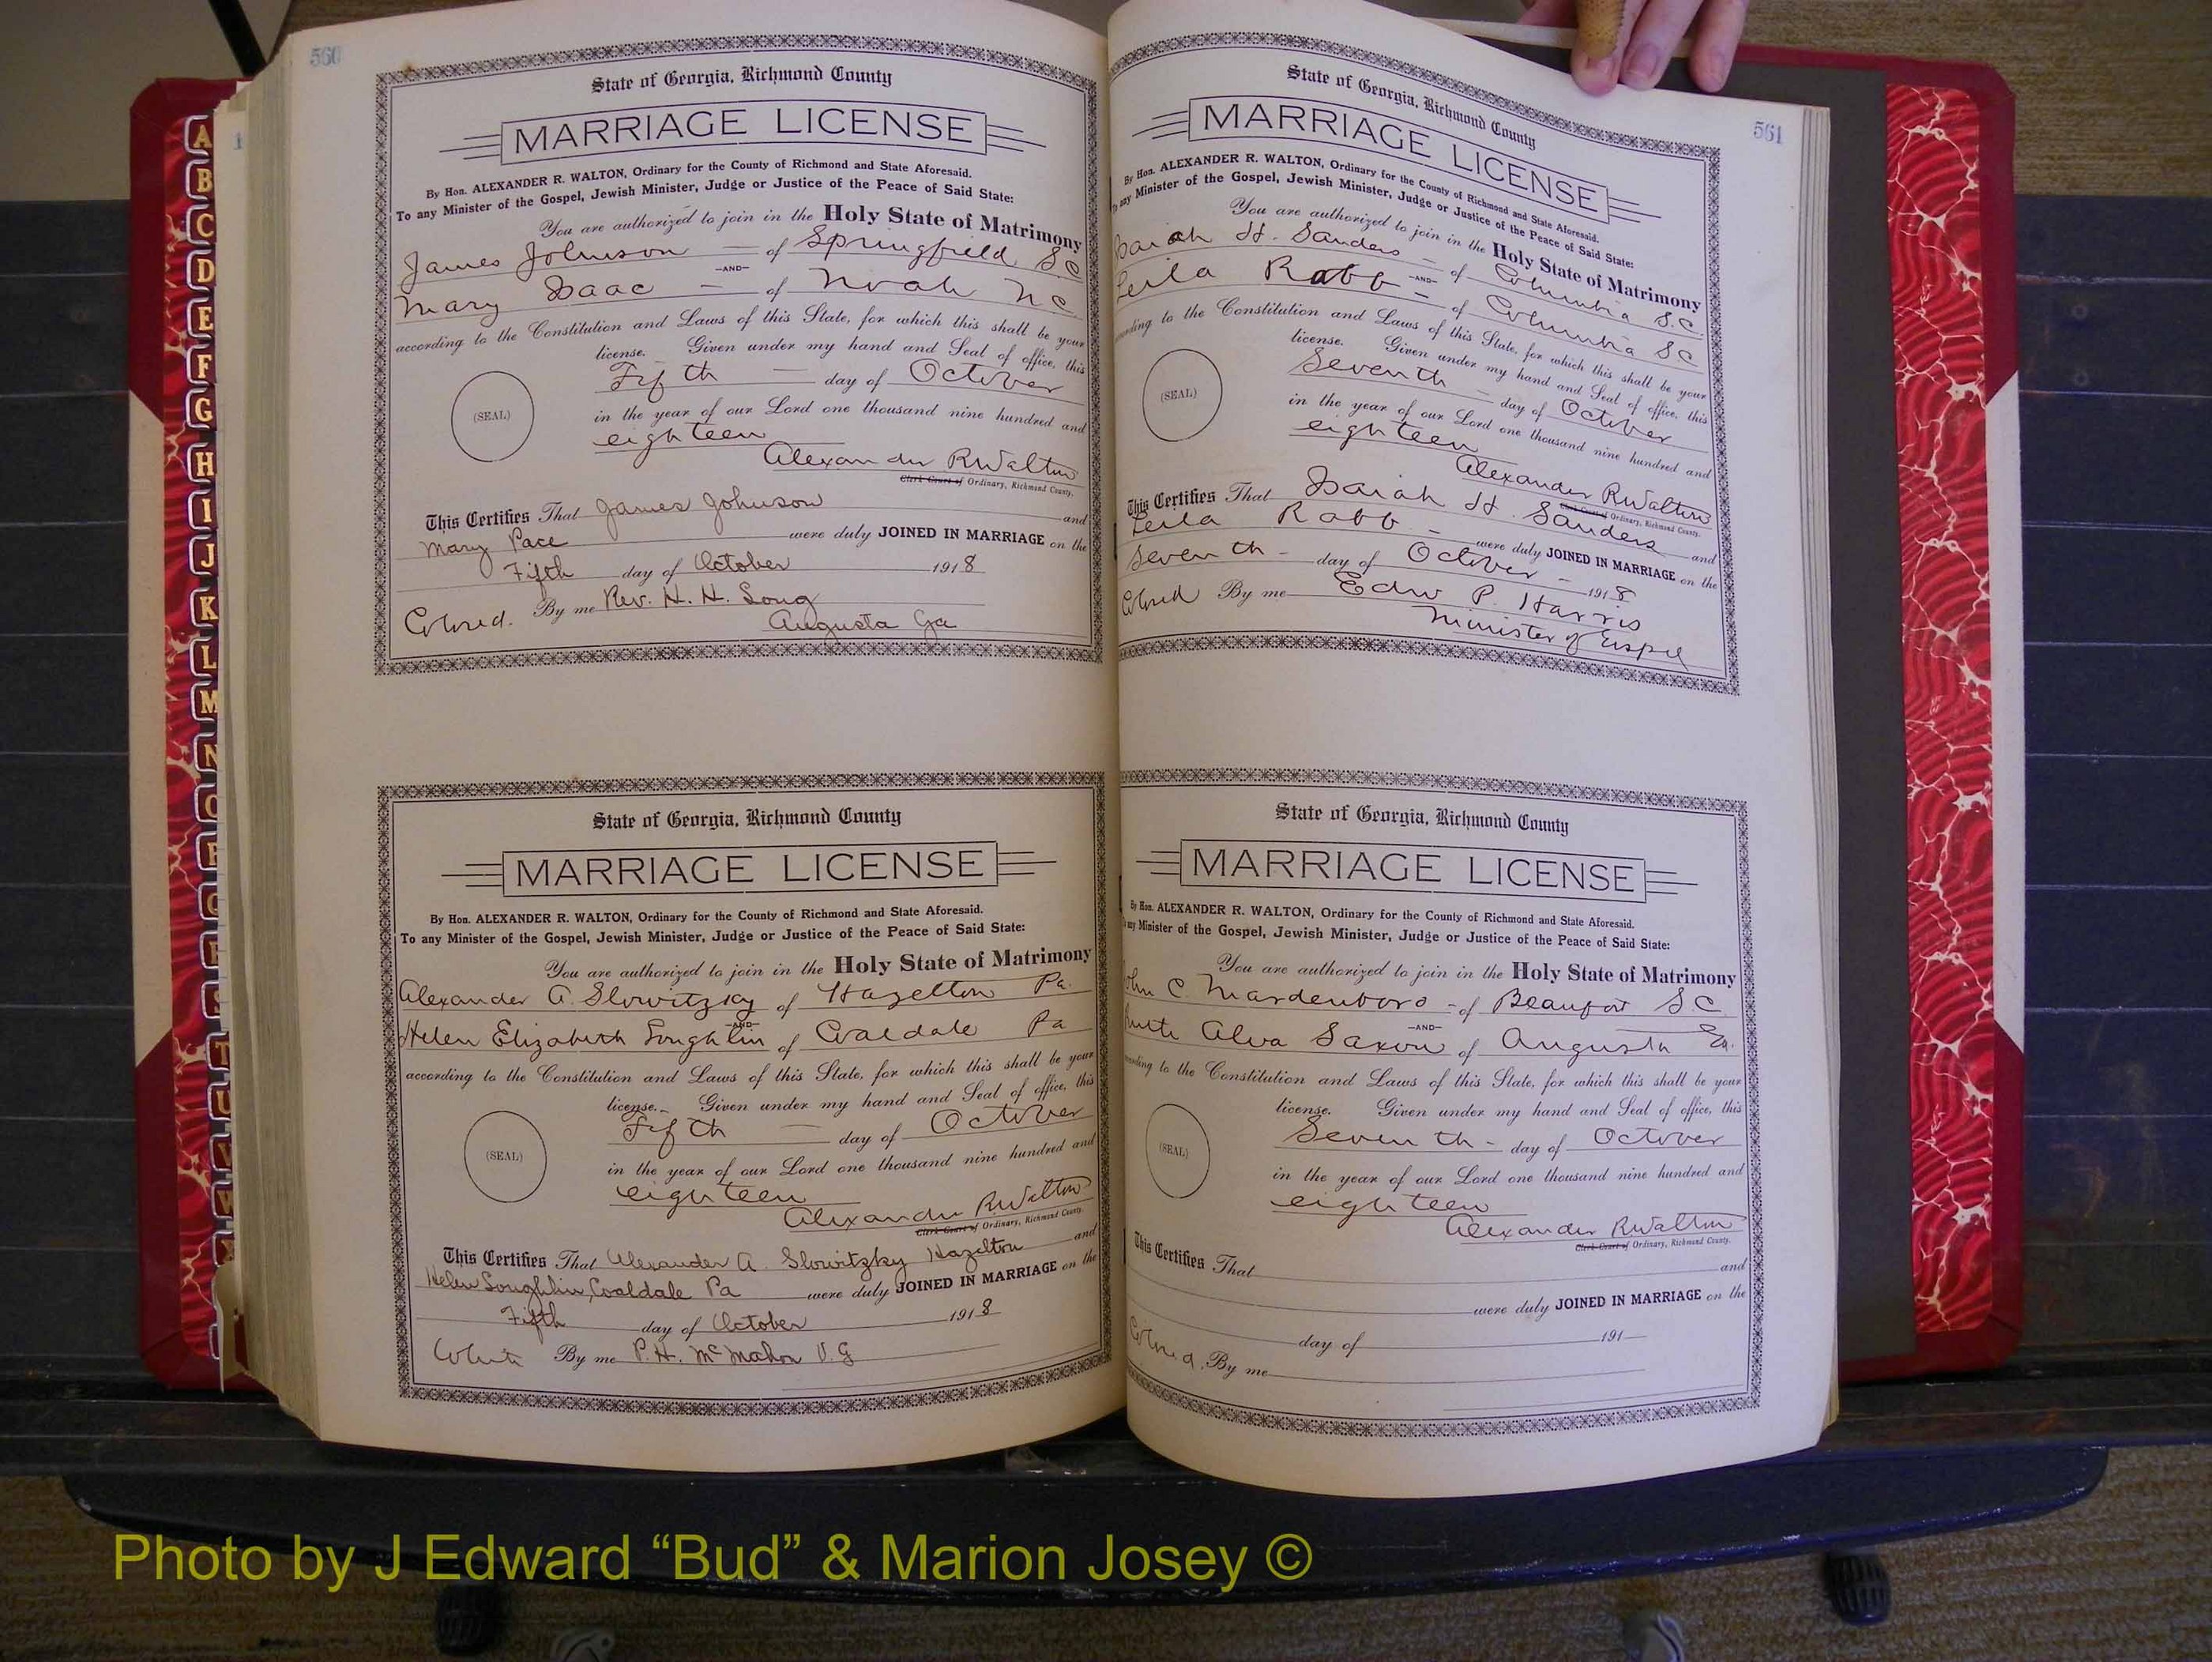 560
State of Georgia, Richmond County
MARRIAGE LICENSE
By Hon. ALEXANDER R. WALTON, Ordinary for the County of Richmond and State Aforesaid.
To any Minister of the Gospel, Jewish Minister, Judge or Justice of the Peace of Said State:
You are authorized to join in the Holy State of Matrimony
James Johnson — of Springfield S C
—AND—
Mary Isaac — of Noah N C
according to the Constitution and Laws of this State, for which this shall be your
license. Given under my hand and Seal of office, this
Fifth — day of October
(SEAL)
in the year of our Lord one thousand nine hundred and
eighteen
Alexander R Walton
Clerk Court of Ordinary, Richmond County.
This Certifies That James Johnson and
Mary Pace were duly JOINED IN MARRIAGE on the
Fifth day of October 1918
Colored. By me Rev. H. H. Long
Augusta Ga
State of Georgia, Richmond County
MARRIAGE LICENSE
By Hon. ALEXANDER R. WALTON, Ordinary for the County of Richmond and State Aforesaid.
To any Minister of the Gospel, Jewish Minister, Judge or Justice of the Peace of Said State:
You are authorized to join in the Holy State of Matrimony
Alexander A. Slowitzky of Hazelton Pa.
—AND—
Helen Elizabeth Loughlin of Coaldale Pa
according to the Constitution and Laws of this State, for which this shall be your
license. Given under my hand and Seal of office, this
Fifth — day of October
(SEAL)
in the year of our Lord one thousand nine hundred and
eighteen
Alexander R Walton
Clerk Court of Ordinary, Richmond County.
This Certifies That Alexander A. Slowitzky Hazelton and
Helen Loughlin, Coaldale Pa were duly JOINED IN MARRIAGE on the
Fifth day of October 1918
White By me P. H. McMahon V. G
561
State of Georgia, Richmond County
MARRIAGE LICENSE
By Hon. ALEXANDER R. WALTON, Ordinary for the County of Richmond and State Aforesaid.
To any Minister of the Gospel, Jewish Minister, Judge or Justice of the Peace of Said State:
You are authorized to join in the Holy State of Matrimony
Isaiah H. Sanders — of Columbia S.C.
—AND—
Leila Rabb — of Columbia S C
according to the Constitution and Laws of this State, for which this shall be your
license. Given under my hand and Seal of office, this
Seventh day of October
(SEAL)
in the year of our Lord one thousand nine hundred and
eighteen
Alexander R Walton
Clerk Court of Ordinary, Richmond County.
This Certifies That Isaiah H. Sanders and
Leila Rabb — were duly JOINED IN MARRIAGE on the
Seventh — day of October — 1918
Colored By me Edw P. Harris
Minister of Gospel
State of Georgia, Richmond County
MARRIAGE LICENSE
By Hon. ALEXANDER R. WALTON, Ordinary for the County of Richmond and State Aforesaid.
To any Minister of the Gospel, Jewish Minister, Judge or Justice of the Peace of Said State:
You are authorized to join in the Holy State of Matrimony
John C. Mardenboro - of Beaufort S.C.
—AND—
Ruth Alva Saxon of Augusta Ga.
according to the Constitution and Laws of this State, for which this shall be your
license. Given under my hand and Seal of office, this
Seventh - day of October
(SEAL)
in the year of our Lord one thousand nine hundred and
eighteen
Alexander R Walton
Clerk Court of Ordinary, Richmond County.
This Certifies That and
were duly JOINED IN MARRIAGE on the
day of 191
Colored. By me
A
B
C
D
E
F
G
H
I
J
K
L
M
N
O
P
Q
R
S
T
U
V
W
Photo by J Edward “Bud” & Marion Josey ©